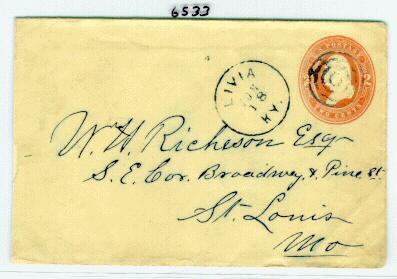 6533
LIVIA
18
KY.
POSTAGE
TWO CENTS
W. H. Richeson Esq
S. E. Cor. Broadway & Pine St
St. Louis
Mo